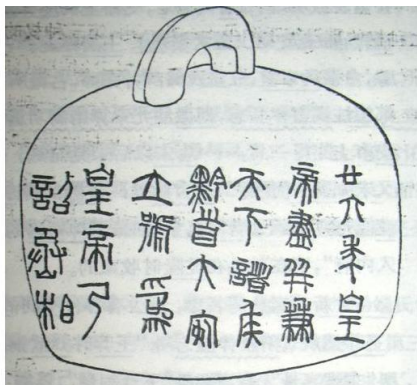 廿六年皇
帝盡并兼
天下諸侯
黔首大安
立號為
皇帝乃
詔丞相